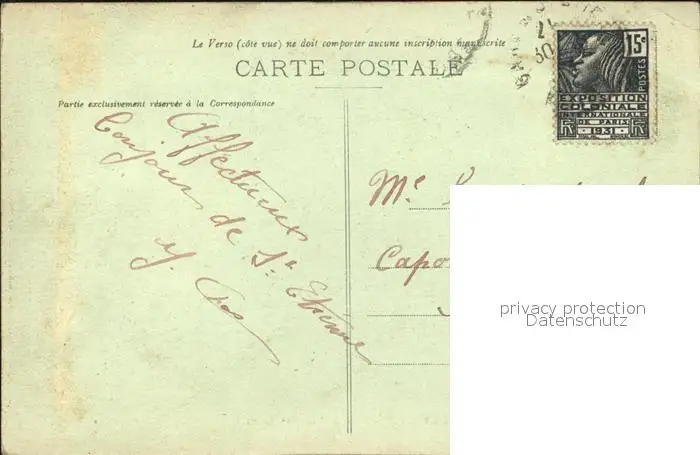 Le Verso (côté vue) ne doit comporter aucune inscription manuscrite
CARTE POSTALE
Partie exclusivement réservée à la Correspondance
Affectueux
Bonjour de St Etienne
30
15c
POSTES
EXPOSITION
COLONIALE
INTERNATIONALE
DE PARIS
1931
privacy protection
Datenschutz